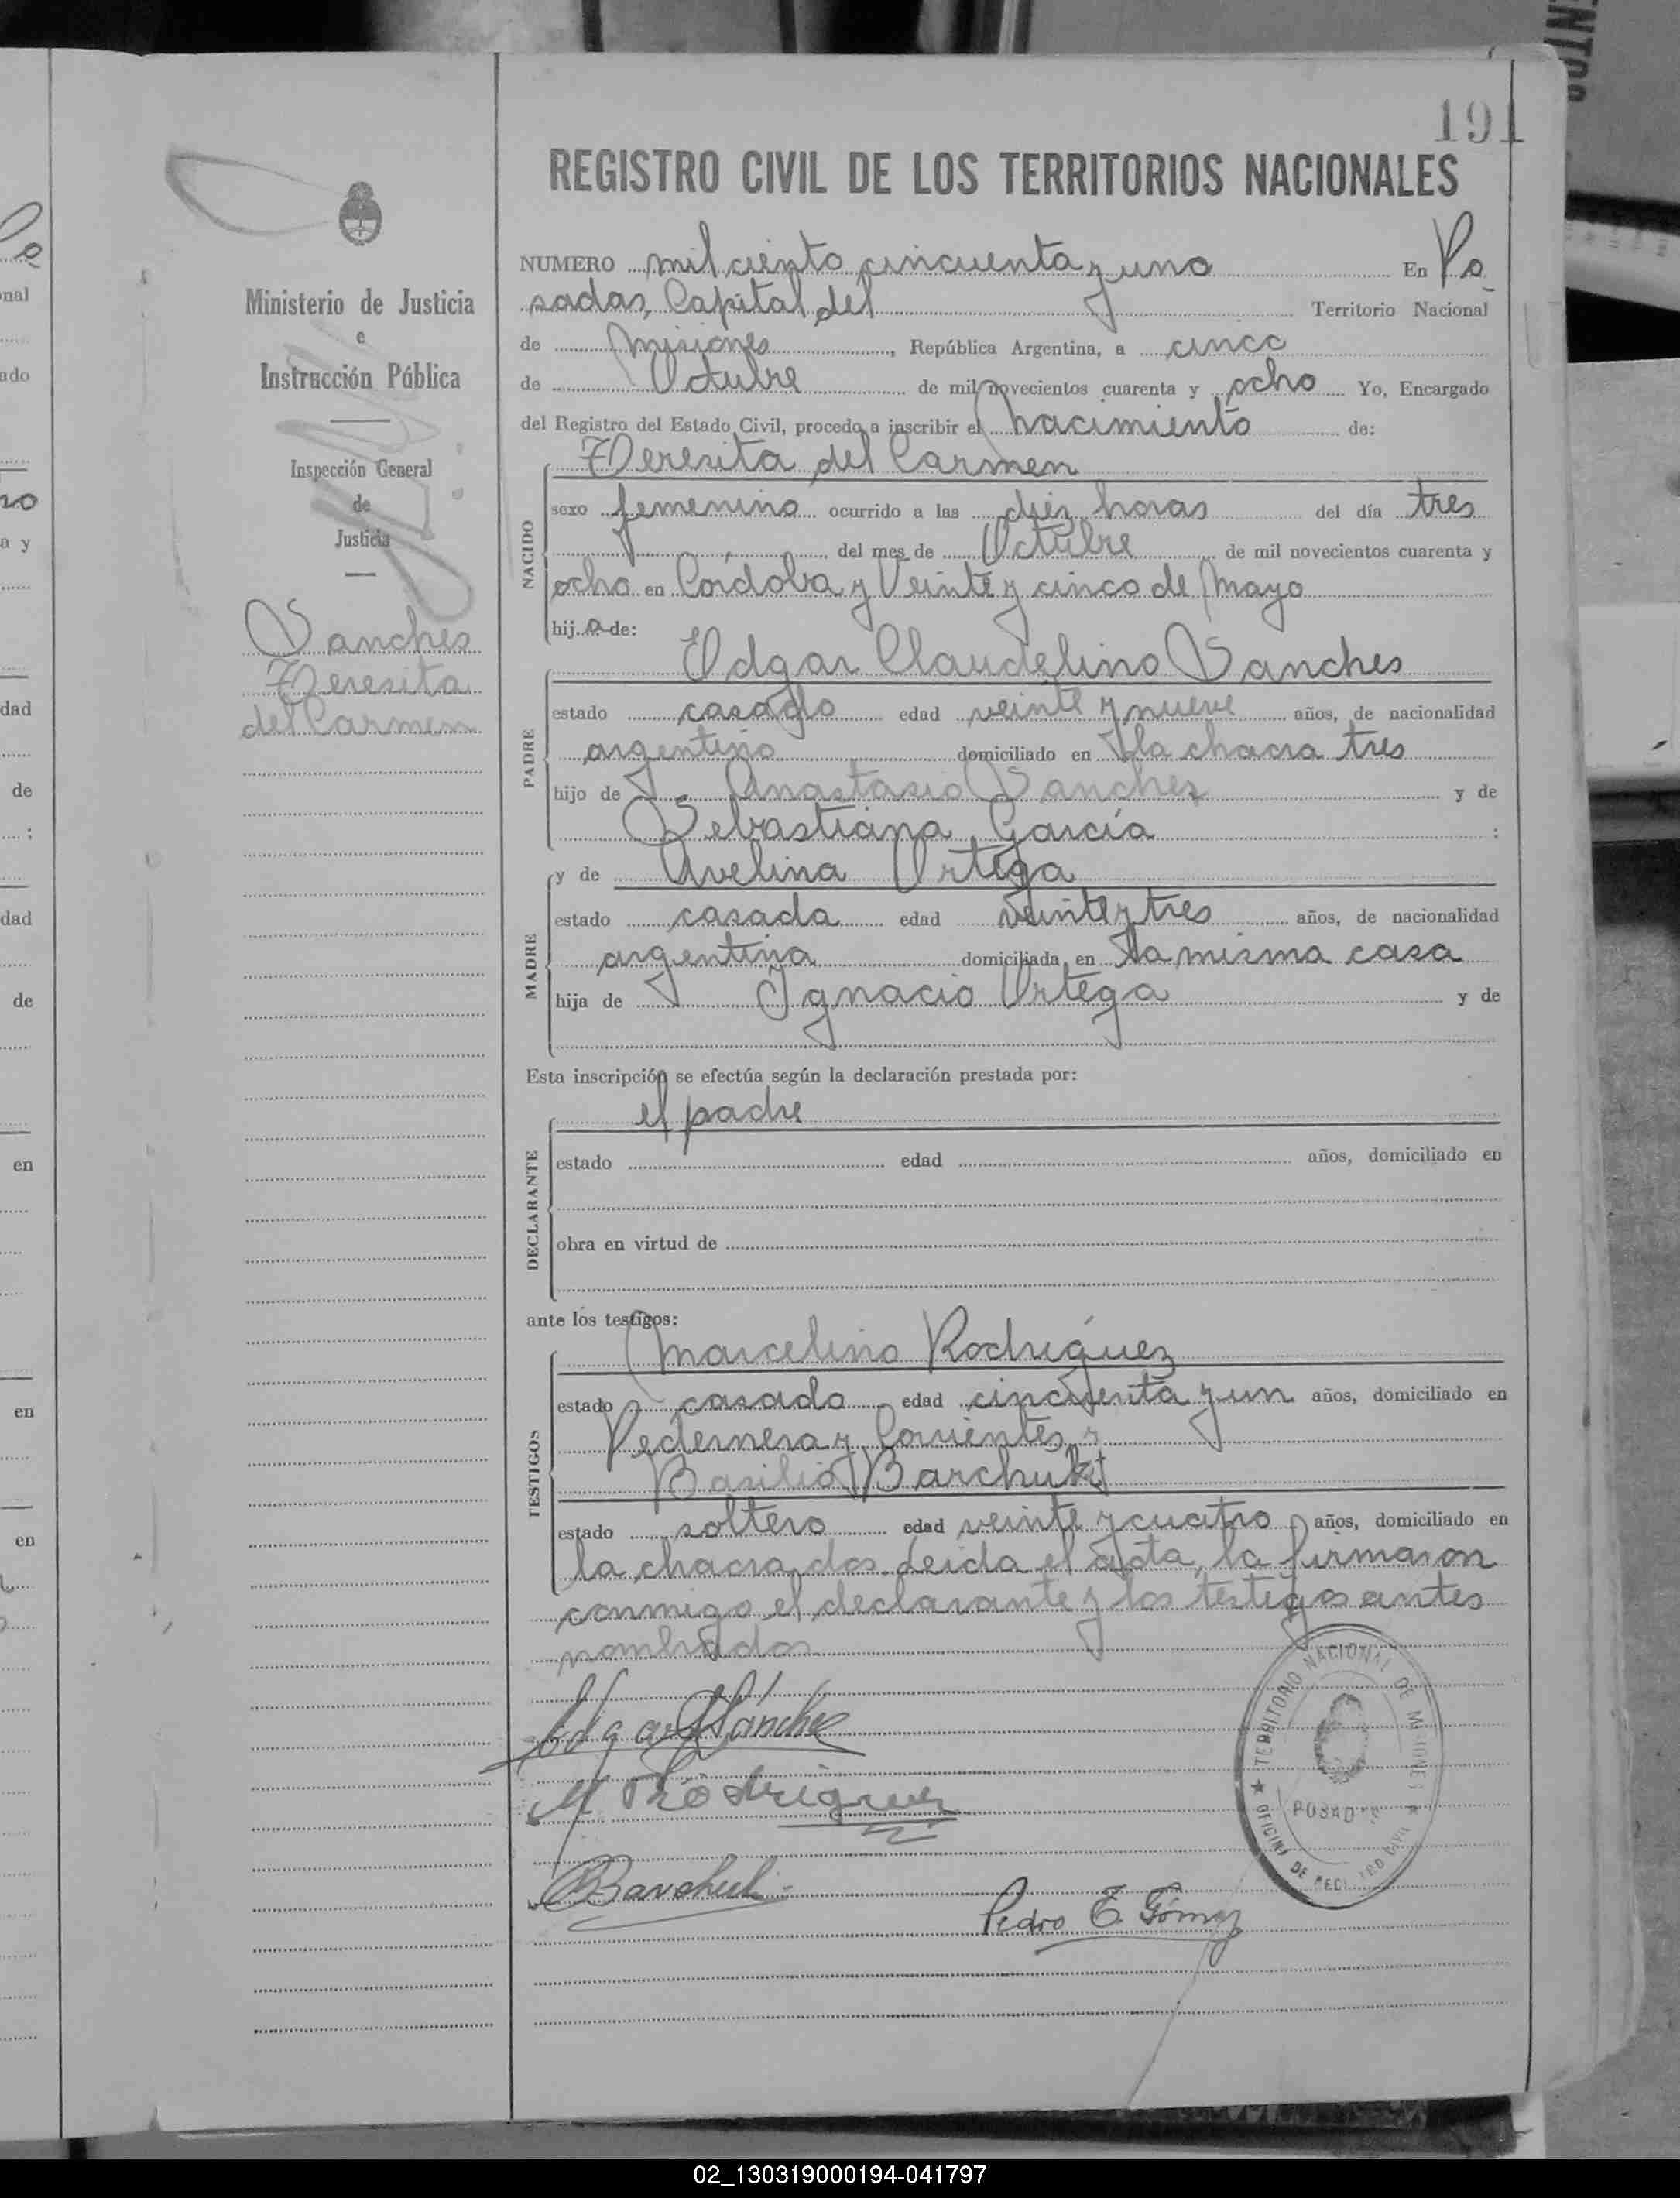 191
REGISTRO CIVIL DE LOS TERRITORIOS NACIONALES
Ministerio de Justicia
e
Instrucción Pública
Inspección General
de
Justicia
Sanches
Teresita
del Carmen
NUMERO mil ciento cincuenta y uno En Po
sadas, Capital del Territorio Nacional
de Misiones, República Argentina, a cinco
de Octubre de mil novecientos cuarenta y ocho Yo, Encargado
del Registro del Estado Civil, procedo a inscribir el nacimiento de:
Teresita del Carmen
NACIDO
sexo femenino ocurrido a las diez horas del día tres
del mes de Octubre de mil novecientos cuarenta y
ocho en Córdoba y Veinte y cinco de Mayo
hija de:
Edgar Claudelino Sanches
PADRE
estado casado edad veinte y nueve años, de nacionalidad
argentino domiciliado en la chacra tres
hijo de Anastasio Sanchez y de
Sebastiana García :
y de Avelina Ortega
MADRE
estado casada edad veinte y tres años, de nacionalidad
argentina domiciliada en la misma casa
hija de Ignacio Ortega y de
Esta inscripción se efectúa según la declaración prestada por:
el padre
DECLARANTE
estado edad años, domiciliado en
obra en virtud de
ante los testigos:
Marcelino Rodríguez
TESTIGOS
estado casado edad cincuenta y un años, domiciliado en
Pedernera y Corrientes y
Basilio Barchuk
estado soltero edad veinte y cuatro años, domiciliado en
la chacra dos. Leida el acta, la firmaron
conmigo el declarante y los testigos antes
nombrados
Edgar Sánchez
M Rodriguez
BBarchuk
Pedro E. Gómez
TERRITORIO NACIONAL DE MISIONES
POSADAS
OFICINA DE REGISTRO CIVIL
02_130319000194-041797